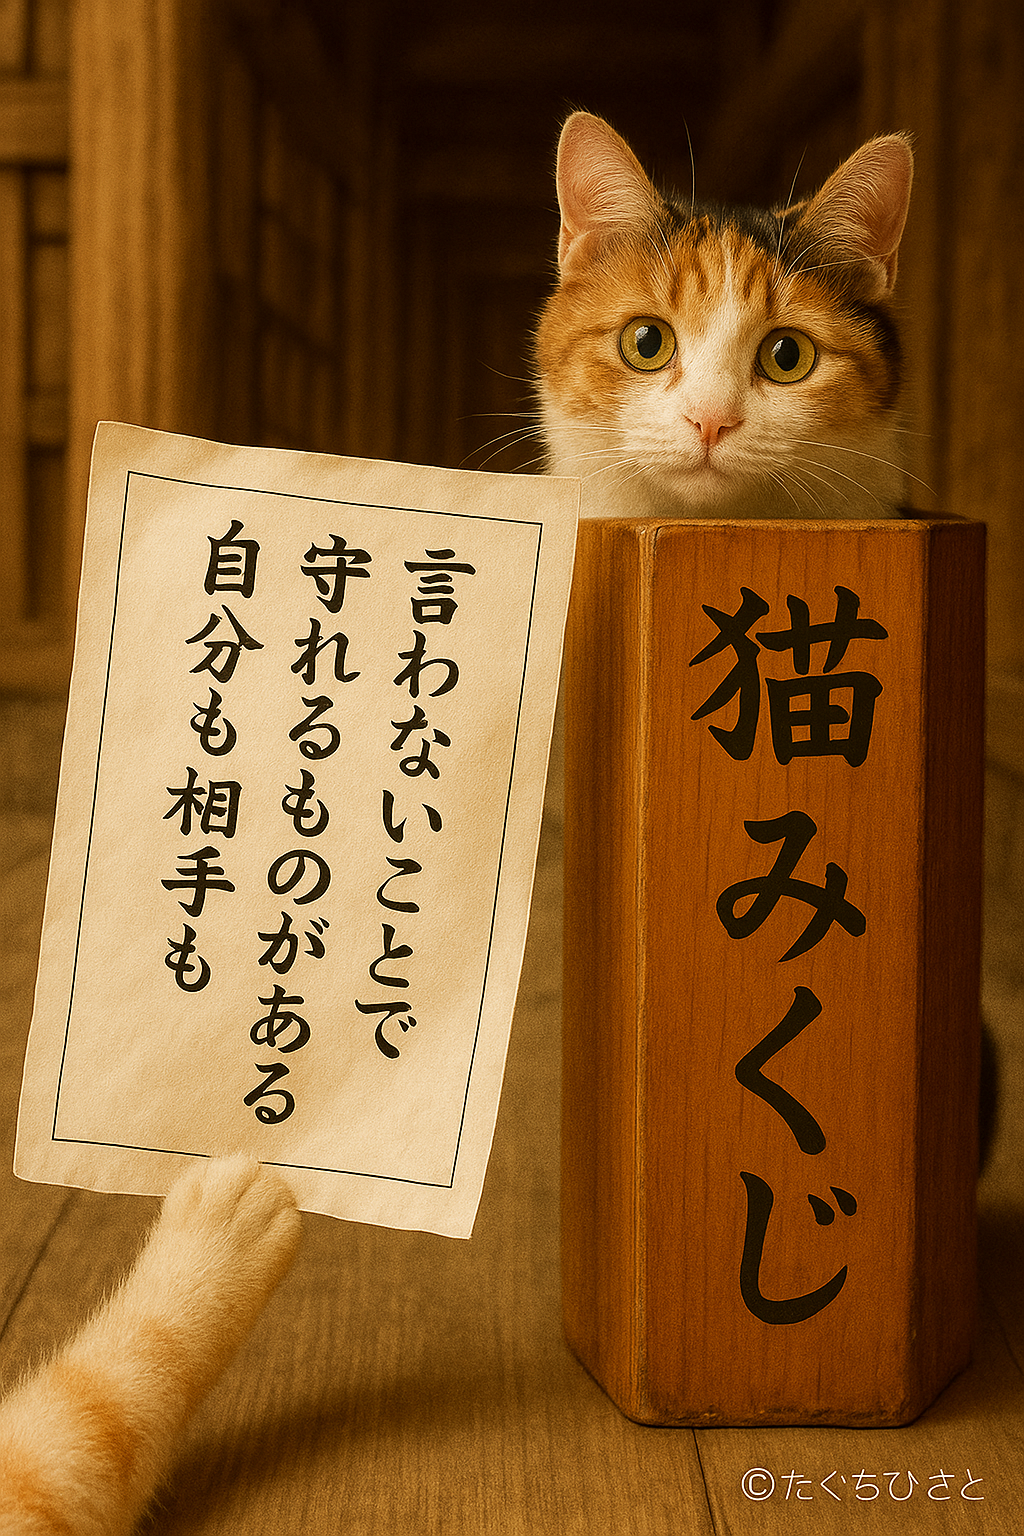 言わないことで
守れるものがある
自分も相手も
猫みくじ
©たぐちひさと